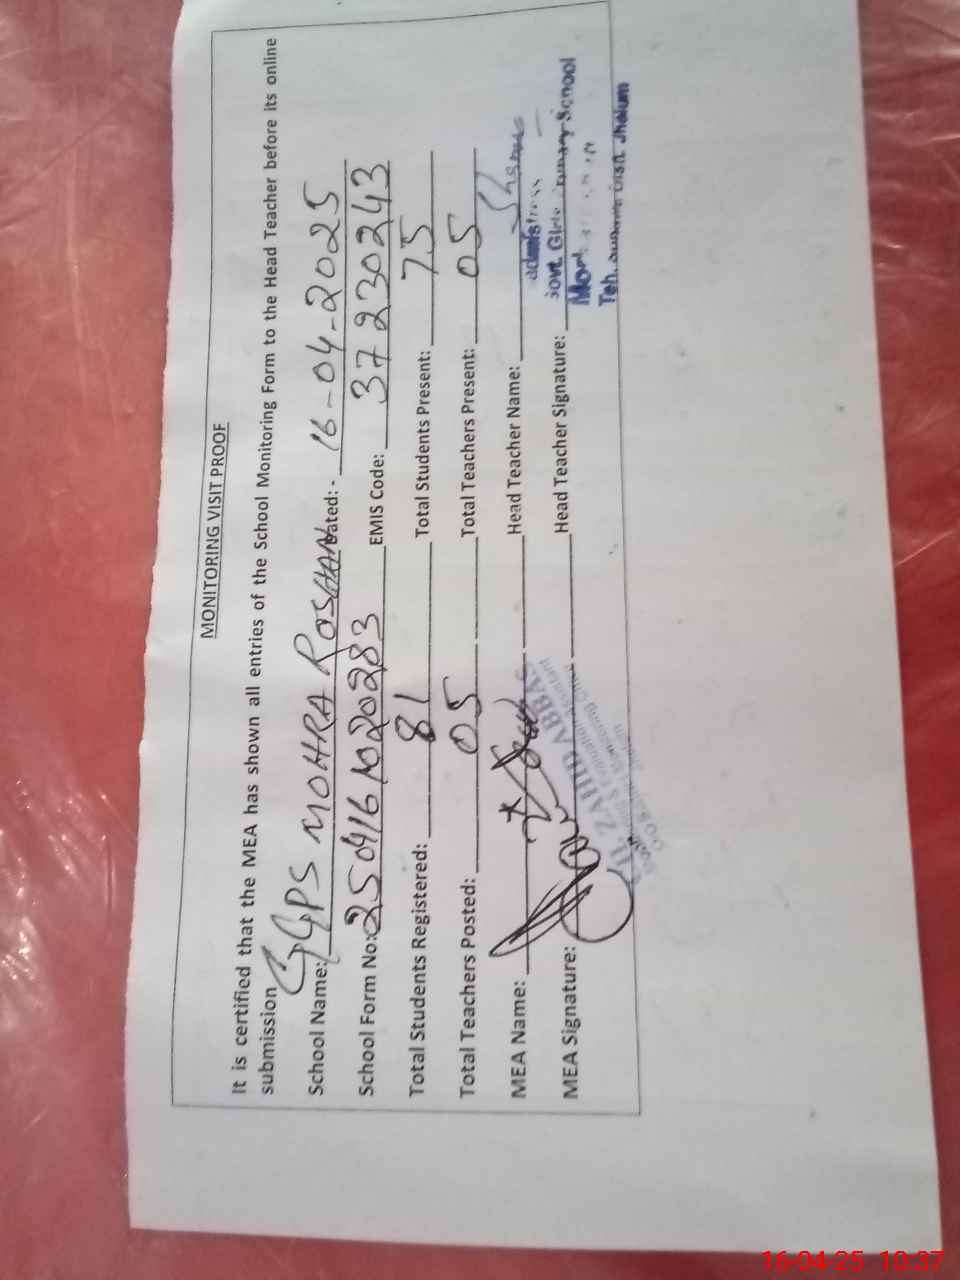 MONITORING VISIT PROOF
It is certified that the MEA has shown all entries of the School Monitoring Form to the Head Teacher before its online
submission
School Name: GGPS MOHRA ROSHAN Dated:- 16-04-2025
School Form No: 2504161020283 EMIS Code: 37230243
Total Students Registered: 81 Total Students Present: 75
Total Teachers Posted: 05 Total Teachers Present: 05
MEA Name: Head Teacher Name:
MEA Signature: Head Teacher Signature:
ZAHID ABBAS
Govt. Girls Primary School
Teh. Distt. Jhelum
16-04-25 10:37